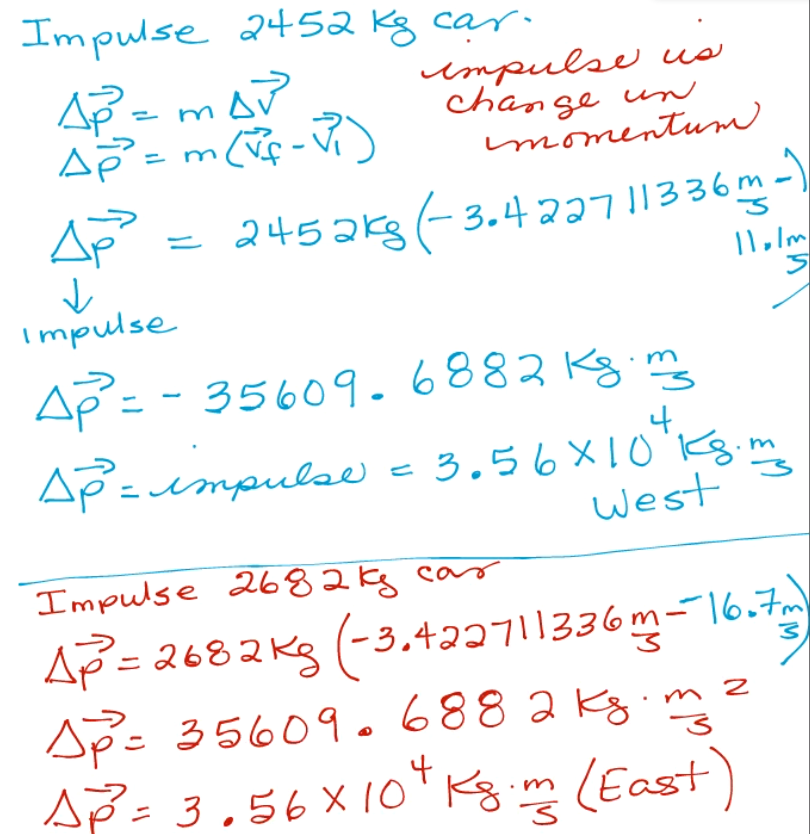 Impulse 2452 kg car.
impulse is
change in
momentum
Δp⃗ = m Δv⃗
Δp⃗ = m(v⃗f - v⃗i)
Δp⃗ = 2452kg (-3.422711336 m/s -
11.1 m/s)
↓
Impulse
Δp⃗ = - 35609.6882 kg·m/s
Δp⃗ = impulse = 3.56 × 10⁴ kg·m/s
West
Impulse 2682 kg car
Δp⃗ = 2682 kg (-3.422711336 m/s - -16.7 m/s)
Δp⃗ = 35609.6882 kg·m/s ²
Δp⃗ = 3.56 × 10⁴ kg·m/s (East)